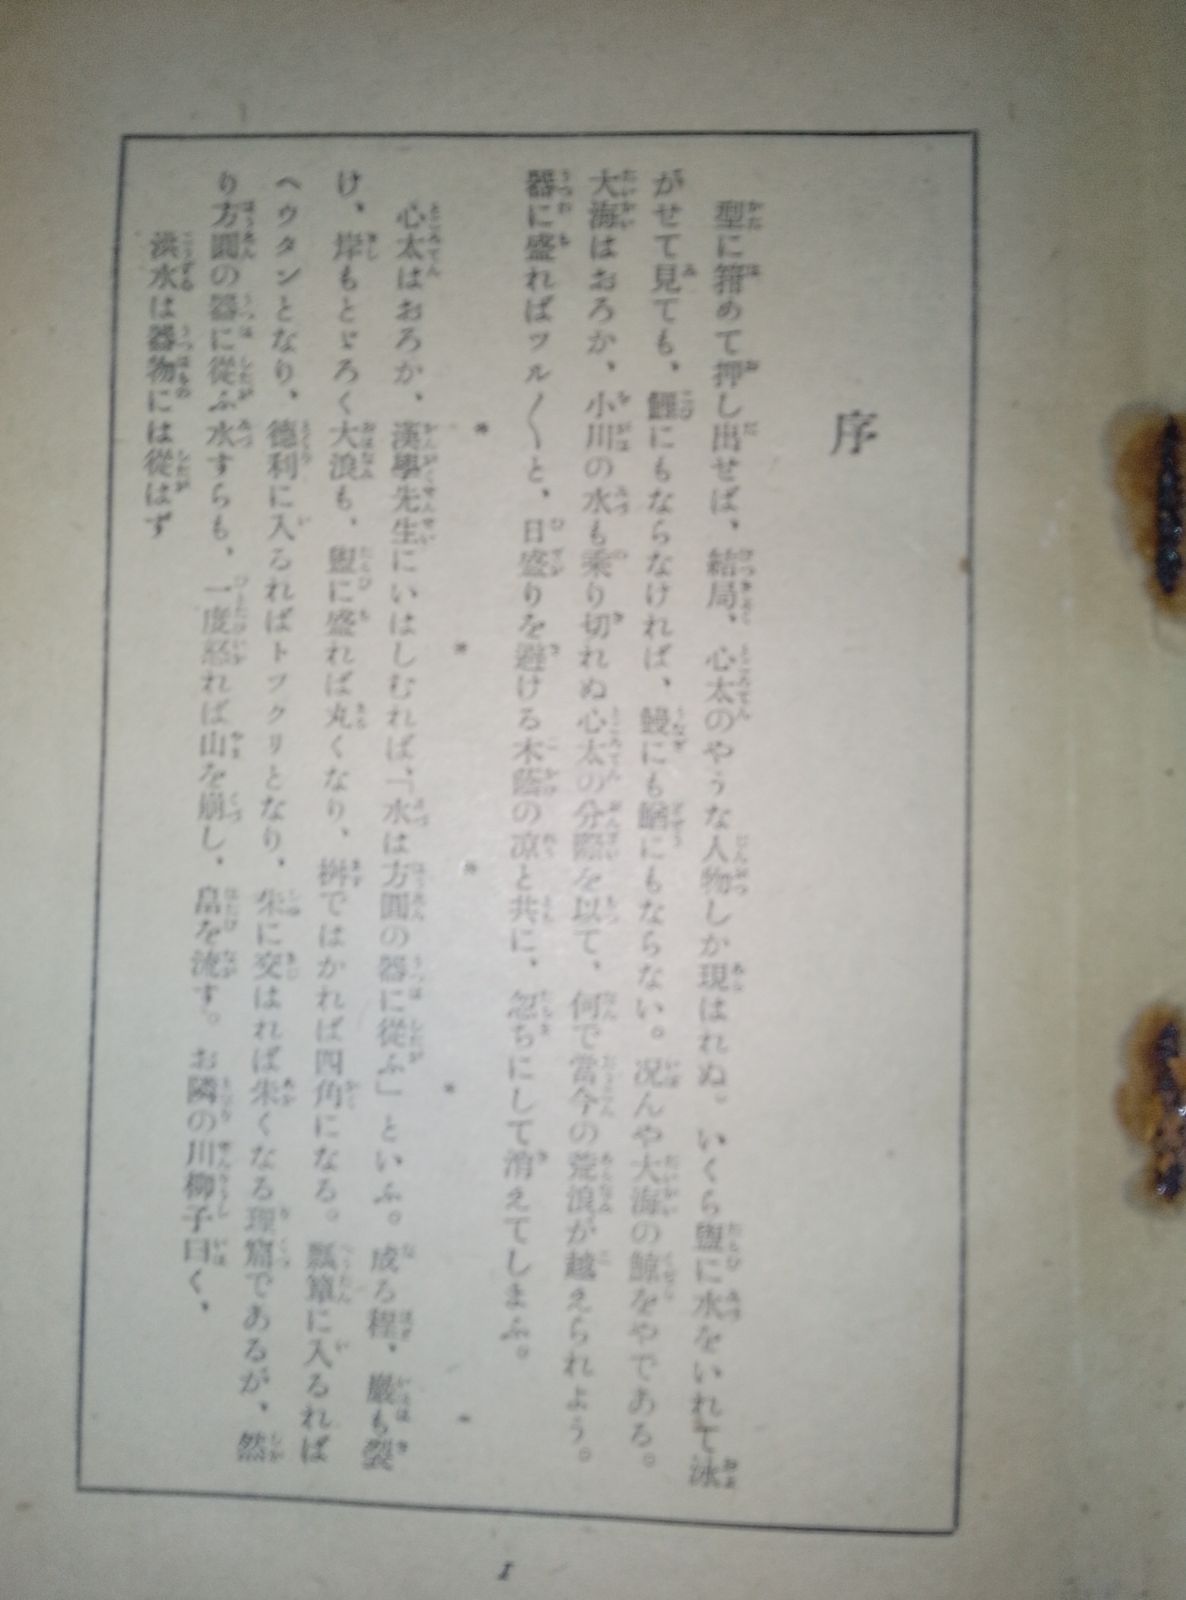 序
型に箝めて押し出せば、結局、心太のやうな人物しか現はれぬ。いくら盥に水をいれて泳
がせて見ても、鯉にもならなければ、鰻にも鰌にもならない。况んや大海の鯨をやである。
大海はおろか、小川の水も乗り切れぬ心太の分際を以て、何で當今の荒浪が越えられよう。
器に盛ればツル〱と、日盛りを避ける木蔭の凉と共に、忽ちにして消えてしまふ。
* * * * *
心太はおろか、漢學先生にいはしむれば、「水は方圓の器に從ふ」といふ。成る程、巖も裂
け、岸もとゞろく大浪も、盥に盛れば丸くなり、桝ではかれば四角になる。瓢簞に入るれば
ヘウタンとなり、德利に入るればトツクリとなり、朱に交はれば朱くなる理窟であるが、然
り方圓の器に從ふ水すらも、一度怒れば山を崩し、畠を流す。お隣の川柳子曰く、
洪水は器物には從はず
1